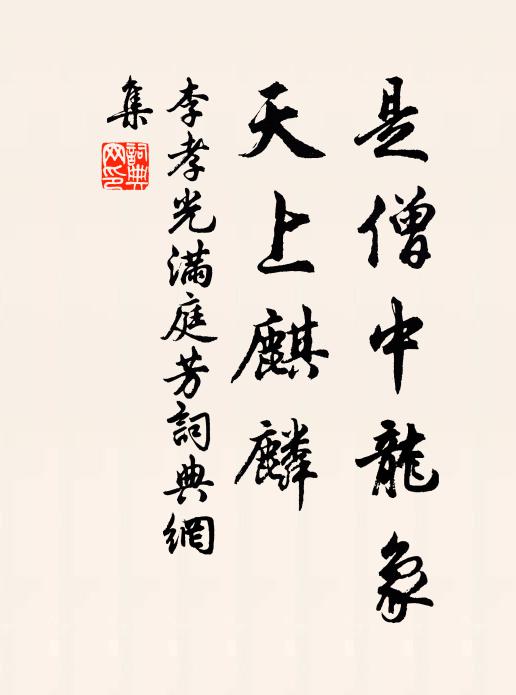 是僧中龍象
天上麒麟
李孝光滿庭芳詞典網
集
詞典網印